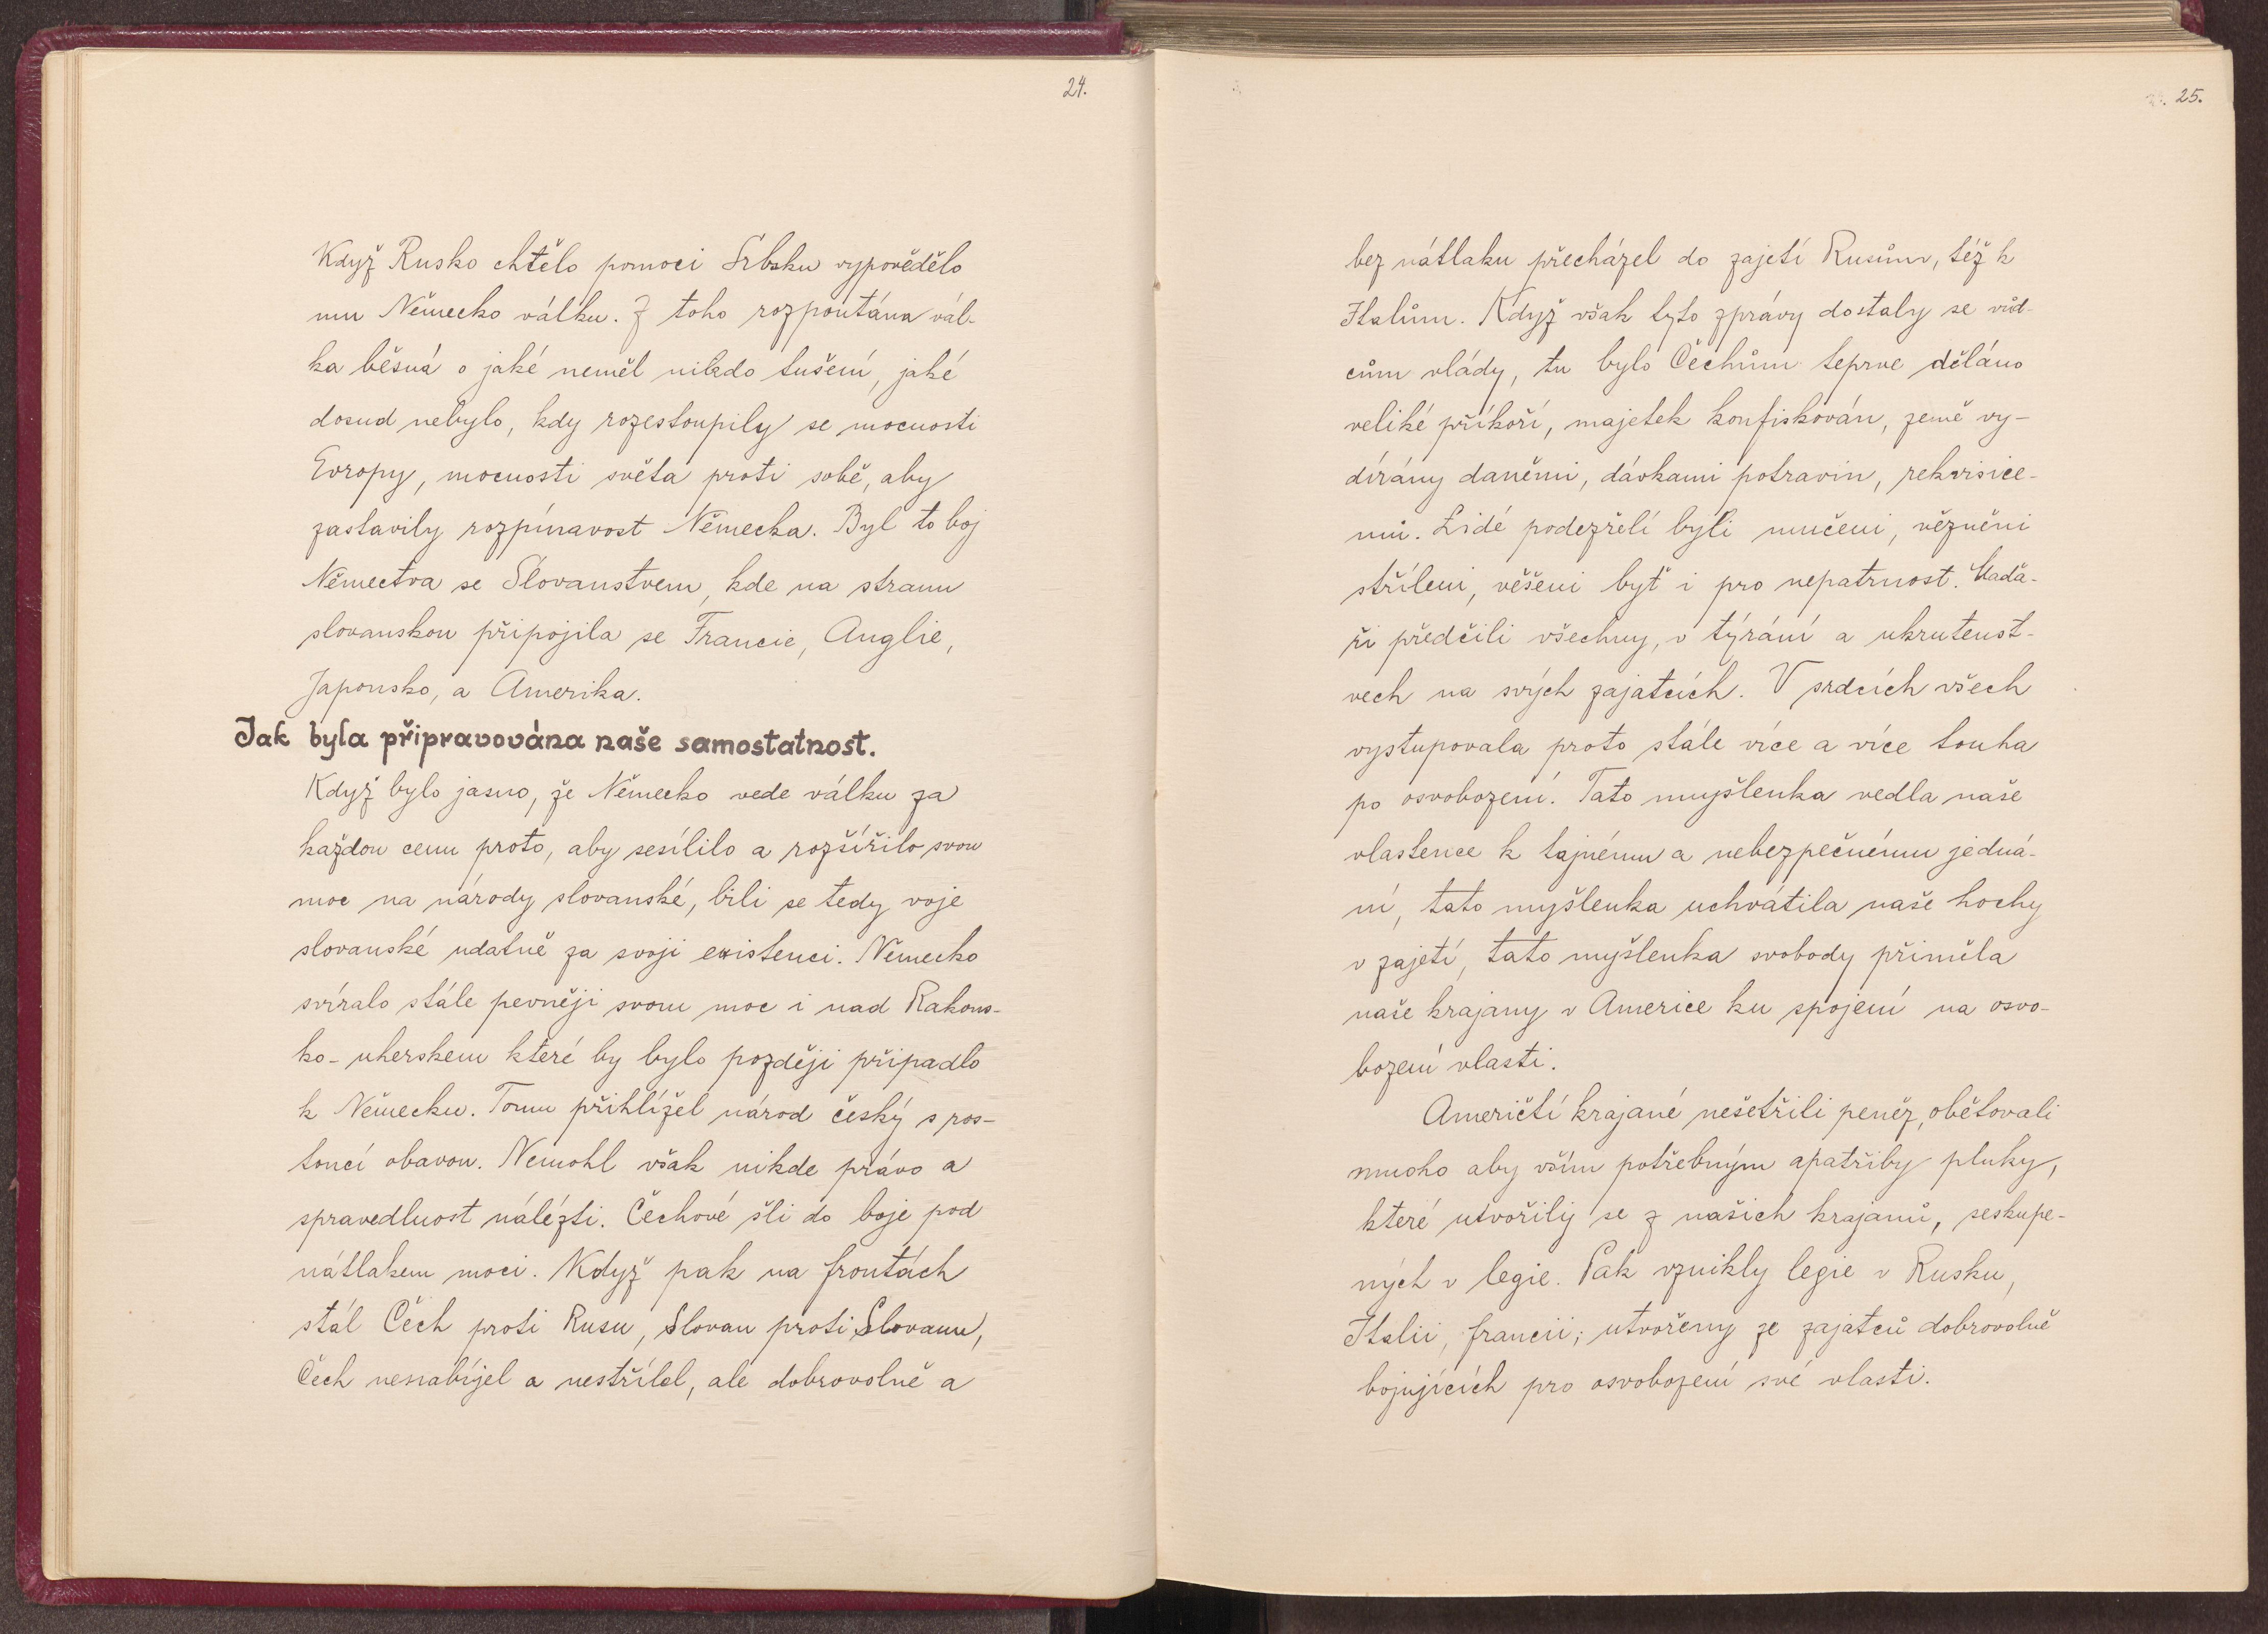 24.
Když Rusko chtělo pomoci Srbsku vypovědělo
mu Německo válku. Z toho rozpoutána vál-
ka běsná o jaké neměl nikdo tušení, jaké
dosud nebylo, kdy rozestoupily se mocnosti
Evropy, mocnosti světa proti sobě, aby
zastavily rozpínavost Německa. Byl to boj
Němectva se Slovanstvem, kde na stranu
slovanskou připojila se Francie, Anglie,
Japonsko, a Amerika.
Jak byla připravována naše samostatnost.
Když bylo jasno, že Německo vede válku za
každou cenu proto, aby sesílilo a rozšířilo svou
moc na národy slovanské, bili se tedy voje
slovanské udatně za svoji existenci. Německo
svíralo stále pevněji svou moc i nad Rakous-
ko-uherskem které by bylo později připadlo
k Německu. Tomu přihlížel národ český s ros-
toucí obavou. Nemohl však nikde právo a
spravedlnost nálézti. Čechové šli do boje pod
nátlakem moci. Když pak na frontách
stál Čech proti Rusu, Slovan proti Slovanu,
Čech nenabíjel a nestřílel, ale dobrovolně a
25.
bez nátlaku přecházel do zajetí Rusům, též k
Italům. Když však tyto zprávy dostaly se vůd-
cům vlády, tu bylo Čechům teprve děláno
veliké příkoří, majetek konfiskován, země vy-
dírány daněmi, dávkami potravin, rekvisice-
mi. Lidé podezřelí byli mučeni, vězněni
stříleni, věšeni byť i pro nepatrnost. Maďa-
ři předčili všechny, v týrání a ukrutenst-
vech na svých zajatcích. V srdcích všech
vystupovala proto stále více a více touha
po osvobození. Tato myšlenka vedla naše
vlastence k tajnému a nebezpečnému jedná-
ní, tato myšlenka uchvátila naše hochy
v zajetí, tato myšlenka svobody přiměla
naše krajany v Americe ku spojení na osvo-
bození vlasti.
Američtí krajané nešetřili peněz, obětovali
mnoho aby vším potřebným opatřiby pluky,
které utvořily se z našich krajanů, seskupe-
ných v legie. Pak vznikly legie v Rusku,
Italii, francii; utvořeny ze zajatců dobrovolně
bojujících pro osvobození své vlasti.